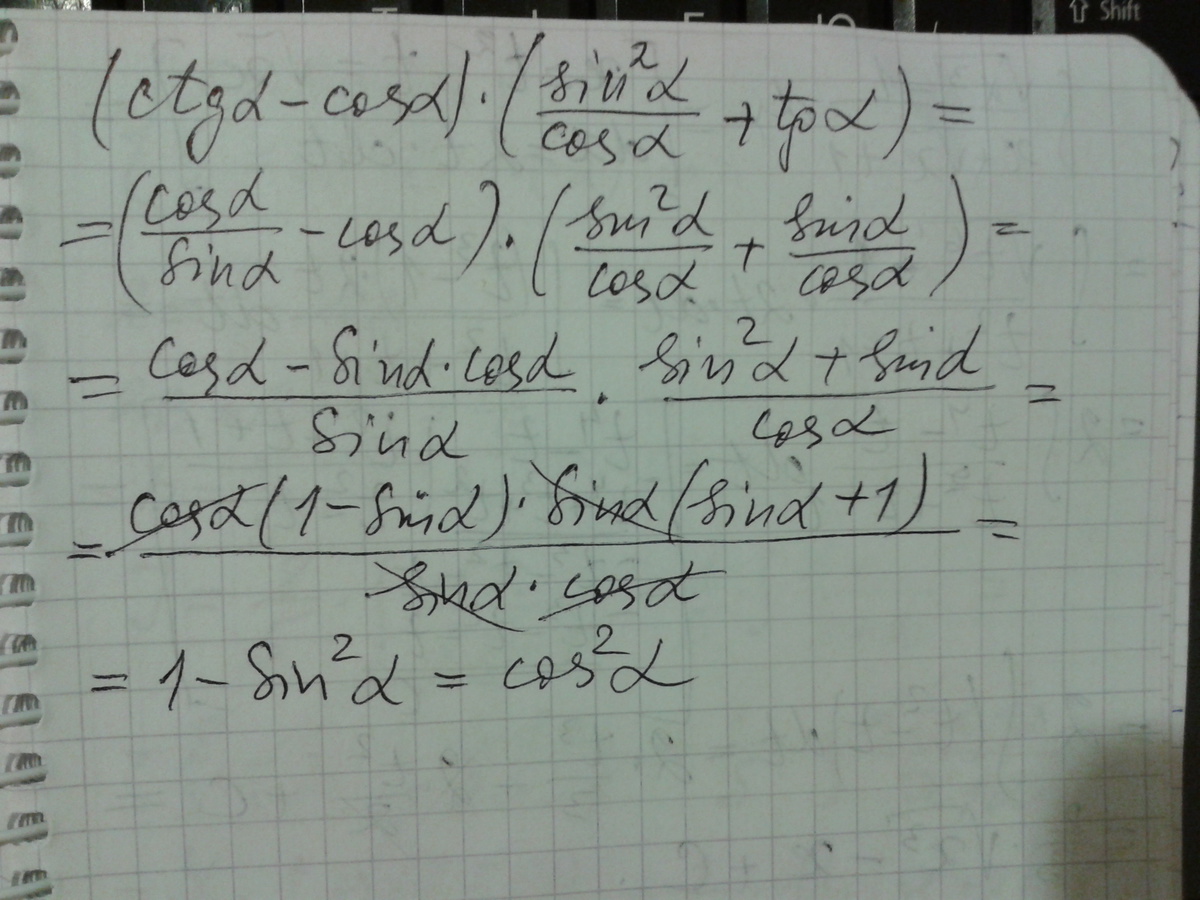 ⇧ Shift
(ctgα − cosα) · (sin²α/cosα + tgα) =
= (cosα/sinα − cosα) · (sin²α/cosα + sinα/cosα) =
= (cosα − sinα · cosα)/sinα · (sin²α + sinα)/cosα =
= cosα(1 − sinα) · sinα(sinα + 1)/(sinα · cosα) =
= 1 − sin²α = cos²α